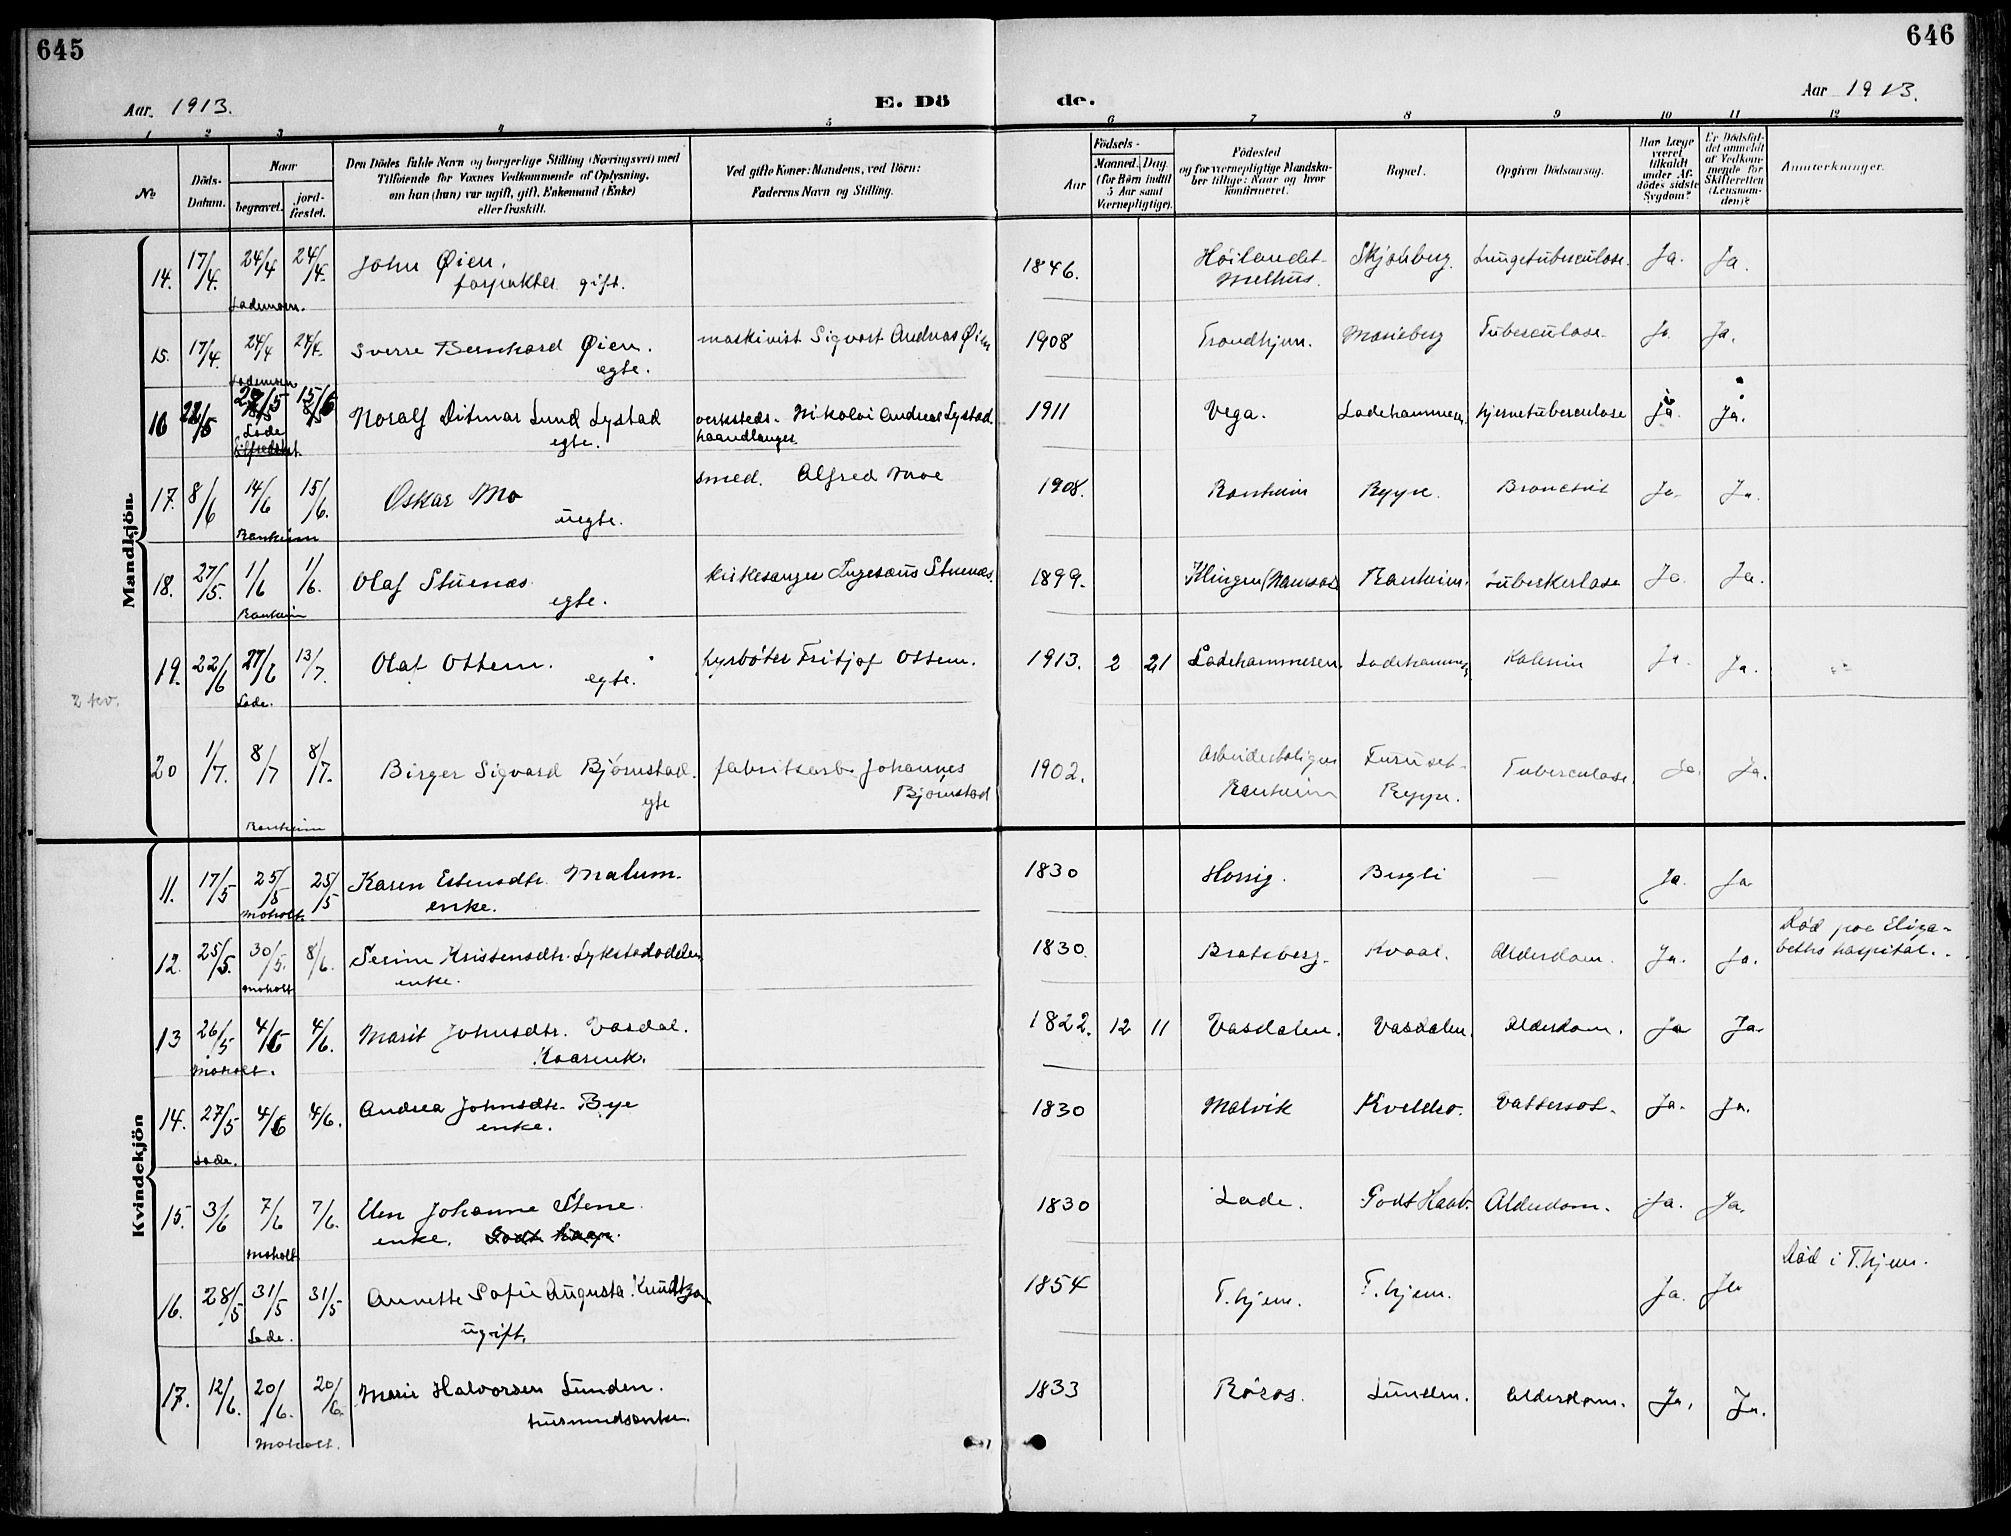 645
646
Aar 1913.
E. Dö
de.
Aar 1913.
1 2 3 4 5 6 7 8 9 10 11 12
No
Döds-Datum.
Naar
begravet.
jord-fæstet.
Den Dödes fulde Navn og borgerlige Stilling (Næringsvei) med
Tilföiende for Voxnes Vedkommende af Oplysning,
om han (hun) var ugift, gift, Enkemand (Enke)
eller fraskilt.
Ved gifte Koner: Mandens, ved Börn:
Faderens Navn og Stilling.
Födsels-
Aar
Maaned. Dag.
(for Börn indtil
5 Aar samt
Værnepligtige).
Födested
og for værnepligtige Mandska-
ber tillige: Naar og hvor
konfirmeret.
Bopæl.
Opgiven Dödsaarsag.
Har Læge
været
tilkaldt
under Af-
dödes sidste
Sygdom?
Er Dödsfal-
det anmeldt
af Vedkom-
mende for
Skifteretten
(Lensman-
den)?
Anmerkninger.
Mandkjön
14. 17/4. 24/4 24/4. John Øien. 1846. Høilandet Skjønberg. Lungetuberculose. Ja. Ja.
Lademoen. gift. Melhus.
15. 17/4. 24/4 24/4. Sverre Bernhard Øien. maskinist Sigvart Andreas Øien 1908 Trondhjem. Marieberg Tuberculose. Ja. Ja.
Lademoen egte.
16 22/5 15/6 Noralf Ditmar Lund Lystad verksteds- Nikolai Andreas Lystad. 1911 Vega. Ladehammeren. hjernetuberculose Ja. Ja.
Lade egte. haandlanger.
17. 8/6 14/6 15/6. Oskar Mo smed. Alfred Moe 1908. Ranheim Rypre. Ja. Ja.
Ranheim uegte.
18. 27/5. 1/6 1/6. Olaf Stuenæs kirkesanger Stuenæs. 1899. Klingen (Namsos Ranheim. tuberkerlose Ja. Ja.
Ranheim egte.
19. 22/6 27/6 13/7. Olaf Ottem. fyrbøter Fritjof Ottem. 1913. 2 21 Ladehammeren. Ladehammer Kolerin Ja. Ja.
2 tev. Lade. egte.
20 1/7. 8/7 8/7. Birger Sigvard Bjørnstad. fabriksarb. Johannes 1902. Arbeiderboliger Furuset Tuberculose. Ja. Ja.
egte Bjørnstad Ranheim Rypre.
Ranheim
Kvindekjön
11. 17/5 25/5 25/5 Karen Estensdtr. Malum. 1830 Bergli — Ja. Ja
Moholt. enke.
12. 25/5. 30/5. 8/6. Serine Kristensdtr. 1830. Bratsberg. Kvaal. Alderdom. Ja. Ja. Død paa Eliza-
Moholt enke. beths hospital.
13 26/5 4/6 4/6. Marit Johnsdtr. Vasdal. 1822. 12 11 Vasdalen. Vasdalen. Alderdom. Ja Ja.
Moholt. Kaarenk.
14. 27/5 4/6 4/6. Andrea Johnsdtr. Bye 1830 Malvik Kveldro. Vattersot. Ja. Ja.
Lade. enke.
15. 3/6 7/6 7/6. Elen Johanne Stene. 1830 Lade. Godt Haab. Alderdom. Ja. Ja.
Moholt enke. Godt haap.
16. 28/5 31/5 31/5 Annette Sofie Augusta Knudtzon 1854 T.hjem. T.hjem. Ja. Ja Død i T.hjem.
Lade. ugift.
17. 12/6. 20/6. 20/6. Marie Halvorsen Lunden. 1833 Røros. Lunden. Alderdom. Ja. Ja.
Moholt. husmandsenke.